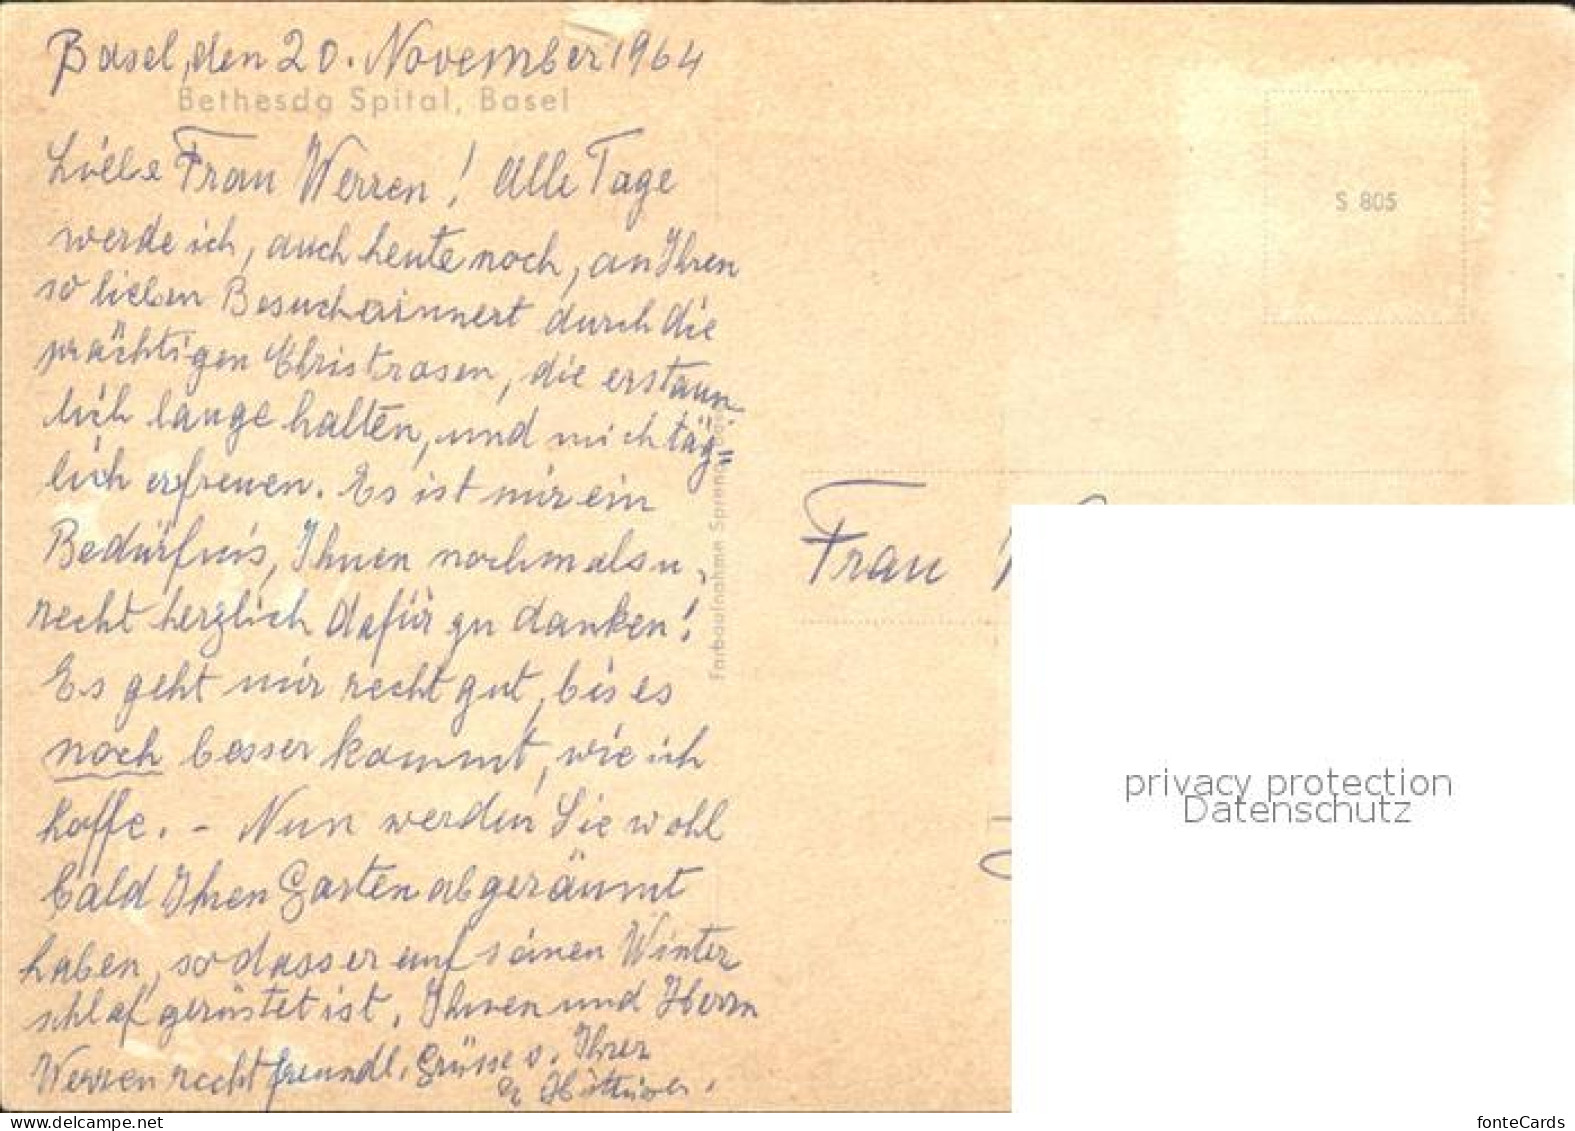 Basel, den 20. November 1964
Bethesda Spital, Basel
Liebe Frau Werren! Alle Tage
werde ich, auch heute noch, an Ihren
so lieben Besuch erinnert durch die
prächtigen Christrosen, die erstaun-
lich lange halten, und mich täg=
lich erfreuen. Es ist mir ein
Bedürfnis, Ihnen nochmals u.
recht herzlich dafür zu danken!
Es geht mir recht gut, bis es
noch besser kommt, wie ich
hoffe. - Nun werden Sie wohl
bald Ihren Garten abgeräumt
haben, so dass er auf seinen Winter
schlaf gerüstet ist. Ihnen und Herrn
Werren recht freundl. Grüsse v. Ihrer
Farbaufnahme
S 805
Frau
privacy protection
Datenschutz
delcampe.net
fonteCards